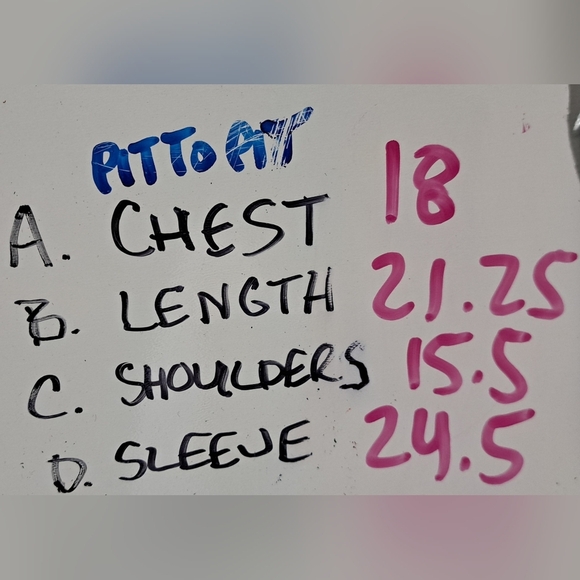 PIT TO PIT
A. CHEST 18
B. LENGTH 21.25
C. SHOULDERS 15.5
D. SLEEVE 24.5